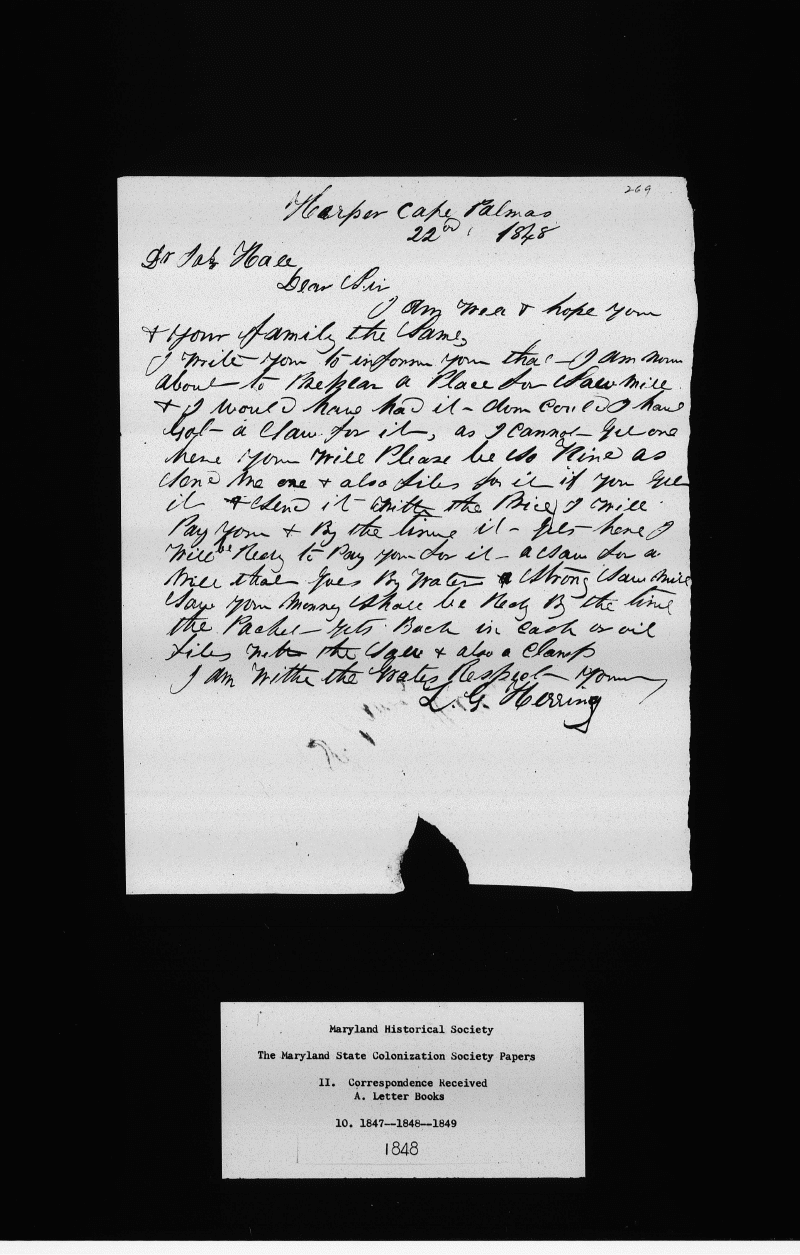 269
Harper Cape Palmas
22nd, 1848
Dr Jas Hall
Dear Sir
I am well & hope you
& your family the Same,
I write you to inform you that I am now
about to Prepear a Place for Saw mill
& I would have had it don could I have
Got a Saw for it, as I cannot Get one
here you will Please be so Kind as
Send me one & also files for it if you Get
it & Send it with the Price I will
Pay you & By the time it Gets here I
will be Redy to Pay you for it a saw for a
Mill that Goes By Water a Strong Saw mill
Saw your Money Shall be Redy By the time
the Packet Gets Back in cash or oil
files with the Saw & also a Clamp
I am withe the Grates Respect your
L. G. Herring
Maryland Historical Society
The Maryland State Colonization Society Papers
II. Correspondence Received
A. Letter Books
10. 1847--1848--1849
1848